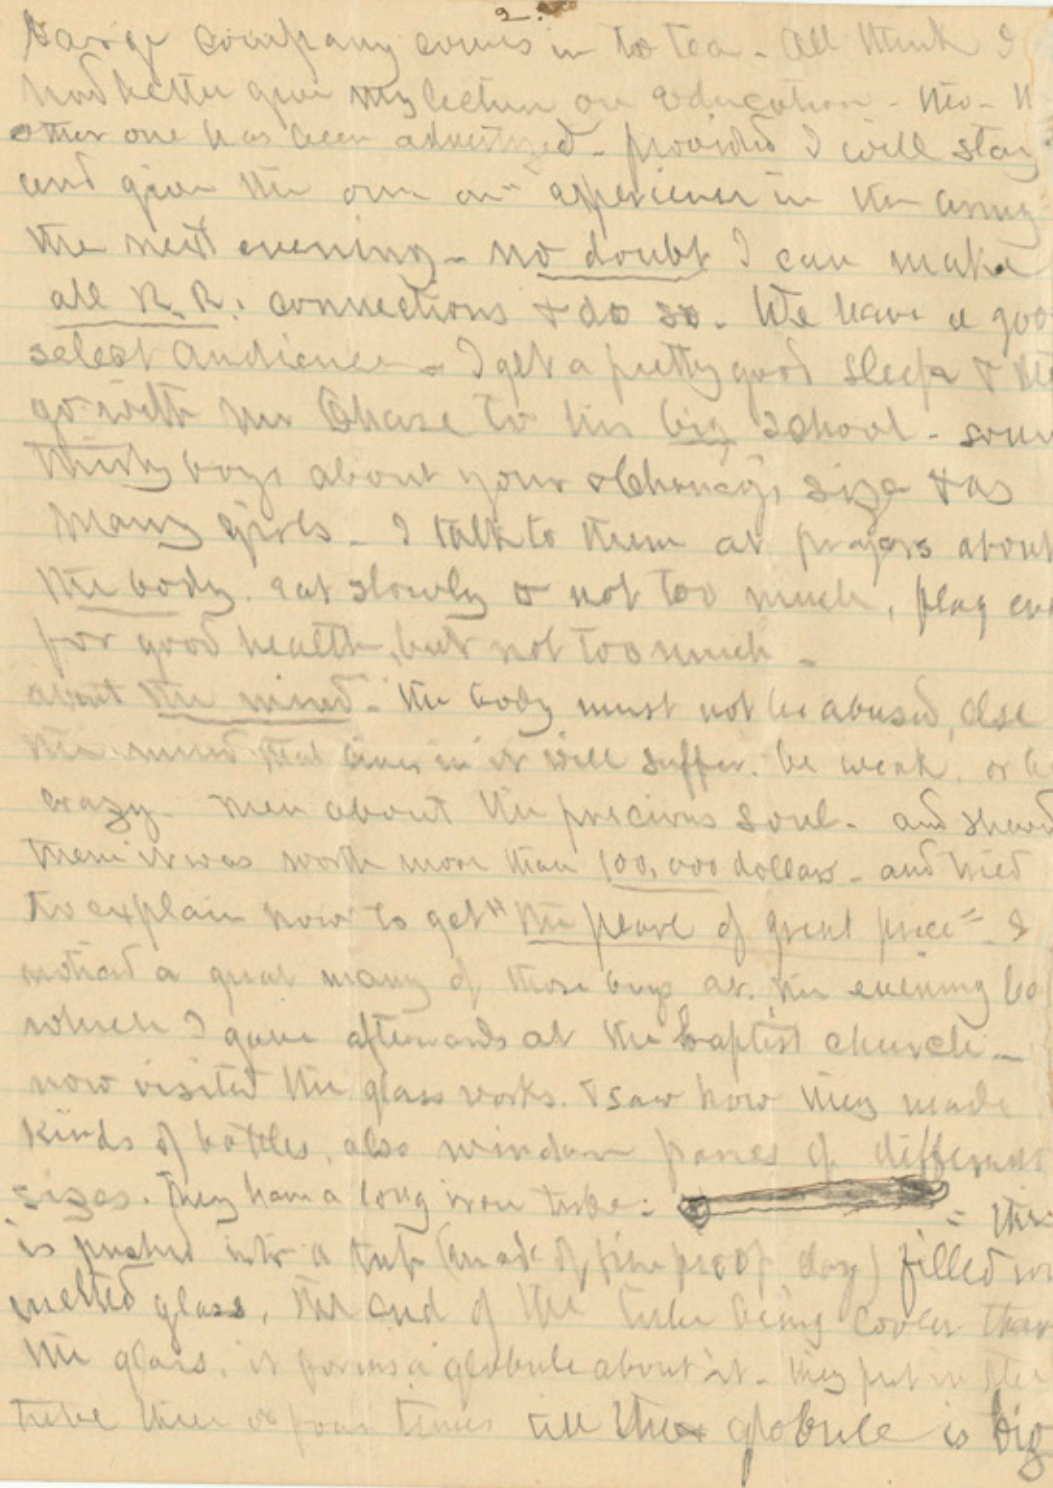 2.
Large company comes in to tea. All think I
had better give my lecture on Education - tho-
other one has been advertized - provided I will stay
and give the one on experience in the army
the next evening - no doubt I can make
all R. R. connections & do so. We have a goo
select audience - I get a pretty good sleep & the
go with Mr Chase to his big school - some
thirty boys about your & Chancey's size & as
many girls - I talk to them at prayers about
the body. eat slowly & not too much, play
for good health, but not too much -
about the mind - the body must not be abused, else
the mind that lives in it will suffer. be weak. or be
crazy - then about the precious soul - and showed
them it was worth more than 100,000 dollars - and tried
to explain how to get "the pearl of great price" - I
noticed a great many of those boys at the evening
which I gave afterwards at the baptist church -
now visited the glass works. & saw how they made
kinds of bottles, also window panes of different
sizes. They have a long iron tube: = this
is pushed into a tub (made of fire proof clay) filled
melted glass, the end of the tube being cooler than
the glass, it forms a globule about it - they put in the
tube three or four times till the globule is big